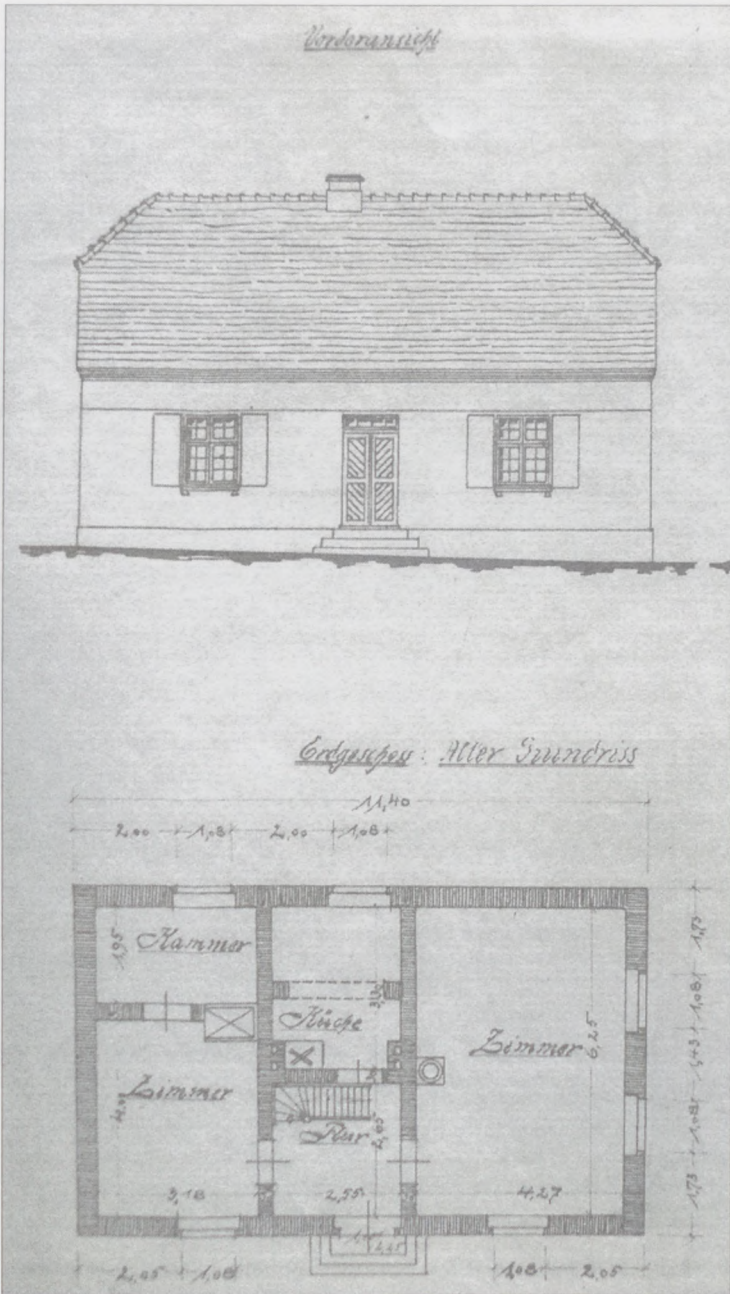 Vorderansicht
Erdgeschoss: Alter Grundriss
11,40
2,00 1,08 2,00 1,08
Kammer
1,95
Küche
Zimmer
6,25
Zimmer
4,00
Flur
2,05
3,18 2,55 4,27
2,05 1,08 1,08 2,05
1,73 1,08 1,08 1,73